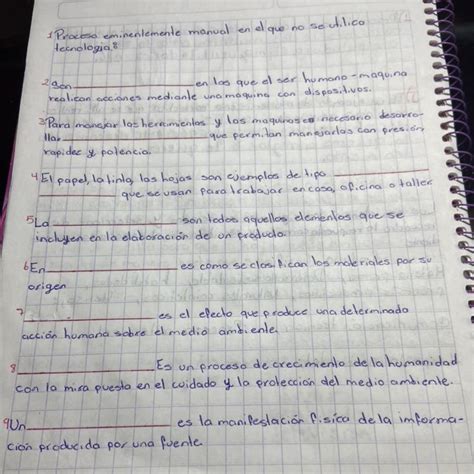 1 Proceso eminentemente manual en el que no se utilico
tecnologia?
2 Son ____________ en las que el ser humano-maquina
realican acciones mediante una maquina con dispositivos.
3 Para manejar las herramientas y las maquinas es necesario desarro-
llar ____________ que permitan manejarlas con presión,
rapidez y potencia.
4 El papel, la tinta, las hojas son ejemplos de tipo ____________
____________ que se usan para trabajar en casa, oficina o taller
5 La ____________ son todos aquellos elementos que se
incluyen en la elaboración de un producto.
6 En ____________ es como se closifican los materiales por su
origen
7 ____________ es el efecto que produce una determinada
acción humana sobre el medio ambiente.
8 ____________ Es un proceso de crecimiento de la humanidad
con la mira puesta en el cuidado y la protección del medio ambiente.
9 Un ____________ es la manifestación física de la imforma-
ción producida por una fuente.